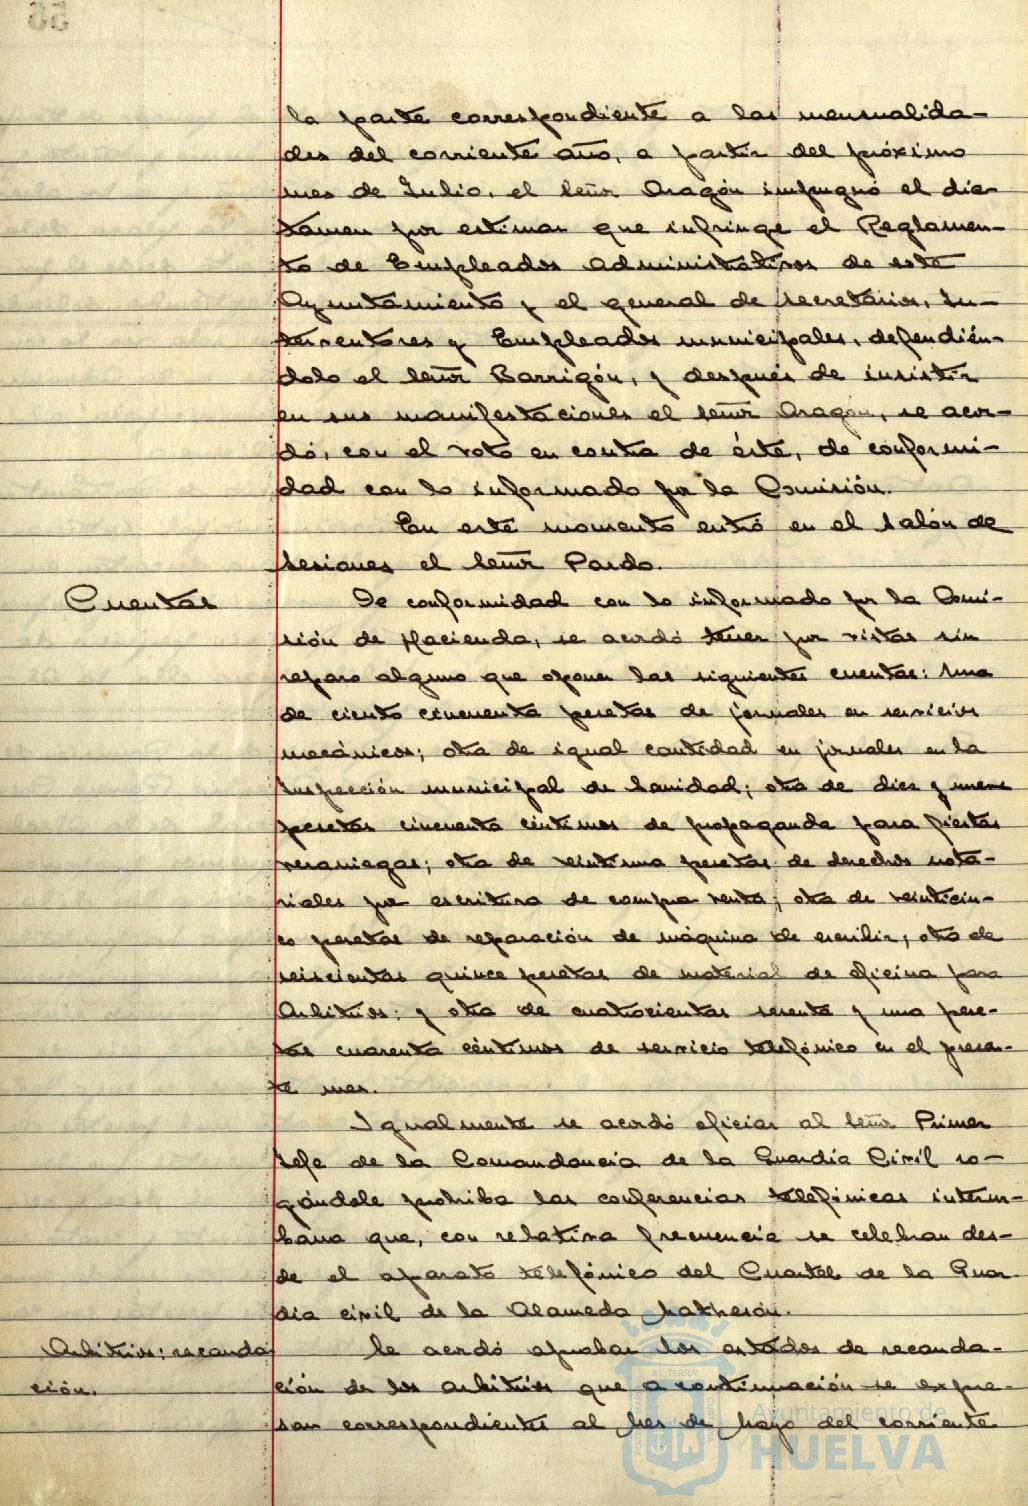 la parte correspondiente a las mensualida-
des del corriente año, a partir del próximo
mes de Julio, el señor Aragón impugnó el dic-
tamen por estimar que infringe el Reglamen-
to de Empleados administrativos de este
Ayuntamiento y el general de Secretarios, In-
terventores y Empleados municipales, defendién-
dolo el señor Barrigón, y después de insistir
en sus manifestaciones el señor Aragón, se acor-
dó, con el voto en contra de éste, de conformi-
dad con lo informado por la Comisión.
En este momento entró en el salón de
sesiones el señor Pardo.
Cuentas
De conformidad con lo informado por la Comi-
sión de Hacienda, se acordó tener por vistas sin
reparo alguno que oponer las siguientes cuentas: Una
de ciento cincuenta pesetas de jornales en servicios
mecánicos; otra de igual cantidad en jornales en la
Inspección municipal de Sanidad; otra de diez y nueve
pesetas cincuenta céntimos de propaganda para fiestas
veraniegas; otra de veintiuna pesetas de derechos nota-
riales por escritura de compra venta; otra de veinticin-
co pesetas de reparación de máquina de escribir; otra de
seiscientas quince pesetas de material de oficina para
Arbitrios; y otra de cuatrocientas sesenta y una pese-
tas cuarenta céntimos de servicio telefónico en el presen-
te mes.
Igualmente se acordó oficiar al señor Primer
Jefe de la Comandancia de la Guardia Civil ro-
gándole prohiba las conferencias telefónicas interur-
bana que, con relativa frecuencia se celebran des-
de el aparato telefónico del Cuartel de la Guar-
dia civil de la Alameda Matheson.
Arbitrios: recauda
ción.
Se acordó aprobar los estados de recauda-
ción de los arbitrios que a continuación se expre-
san correspondientes al Mes de Mayo del corriente
Ayuntamiento de
HUELVA